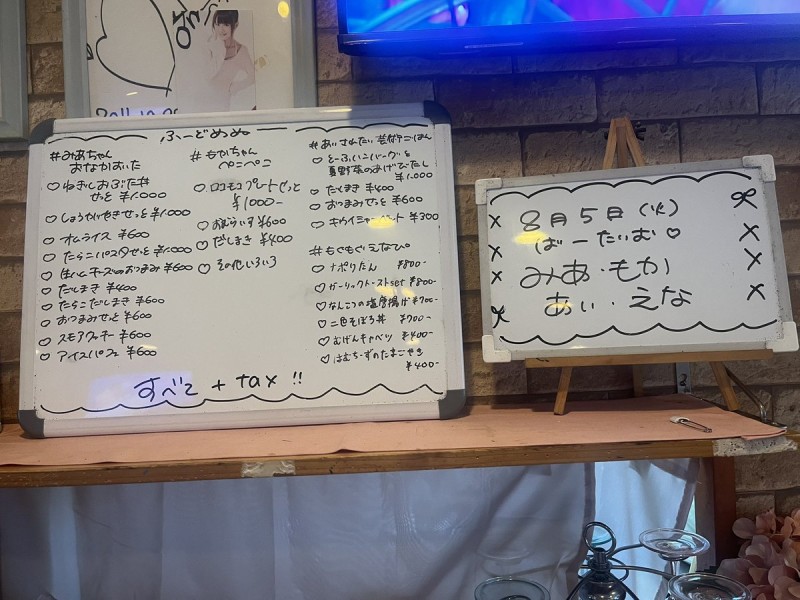 ふーどめぬ
#みあちゃん
おなかおいた
♡ねぎしおぶた丼
せっと ¥1.000
♡しょうがやきせっと ¥1.000
♡オムライス ¥600
♡たらこパスタせっと ¥1.000
♡生ハムチーズのおつまみ ¥600
♡だしまき ¥400
♡たらこだしまき ¥600
♡おつまみせっと ¥600
♡スモアクッキー ¥600
♡アイスパフェ ¥600
#もかちゃん
ぺこぺこ
♡ロコモコプレートせっと
¥1000-
♡おむらいす ¥600
♡だしまき ¥400
♡その他いろいろ
#あいされたい
♡とーふハンバーグと
夏野菜のあげびたし
¥1.000
♡たくまき ¥400
♡おつまみせっと ¥600
♡キウイシャーベット ¥300
#もぐもぐえなぴ。
♡ナポリたん ¥800-
♡ガーリックトーストset ¥800-
♡なんこつの塩唐揚げ ¥700-
♡二色そぼろ丼 ¥700-
♡むげんキャベツ ¥400-
♡はむちーずのたまごやき
¥400-
すべて + tax !!
8月5日(火)
ばーたいむ♡
みあ・もか
あい・えな